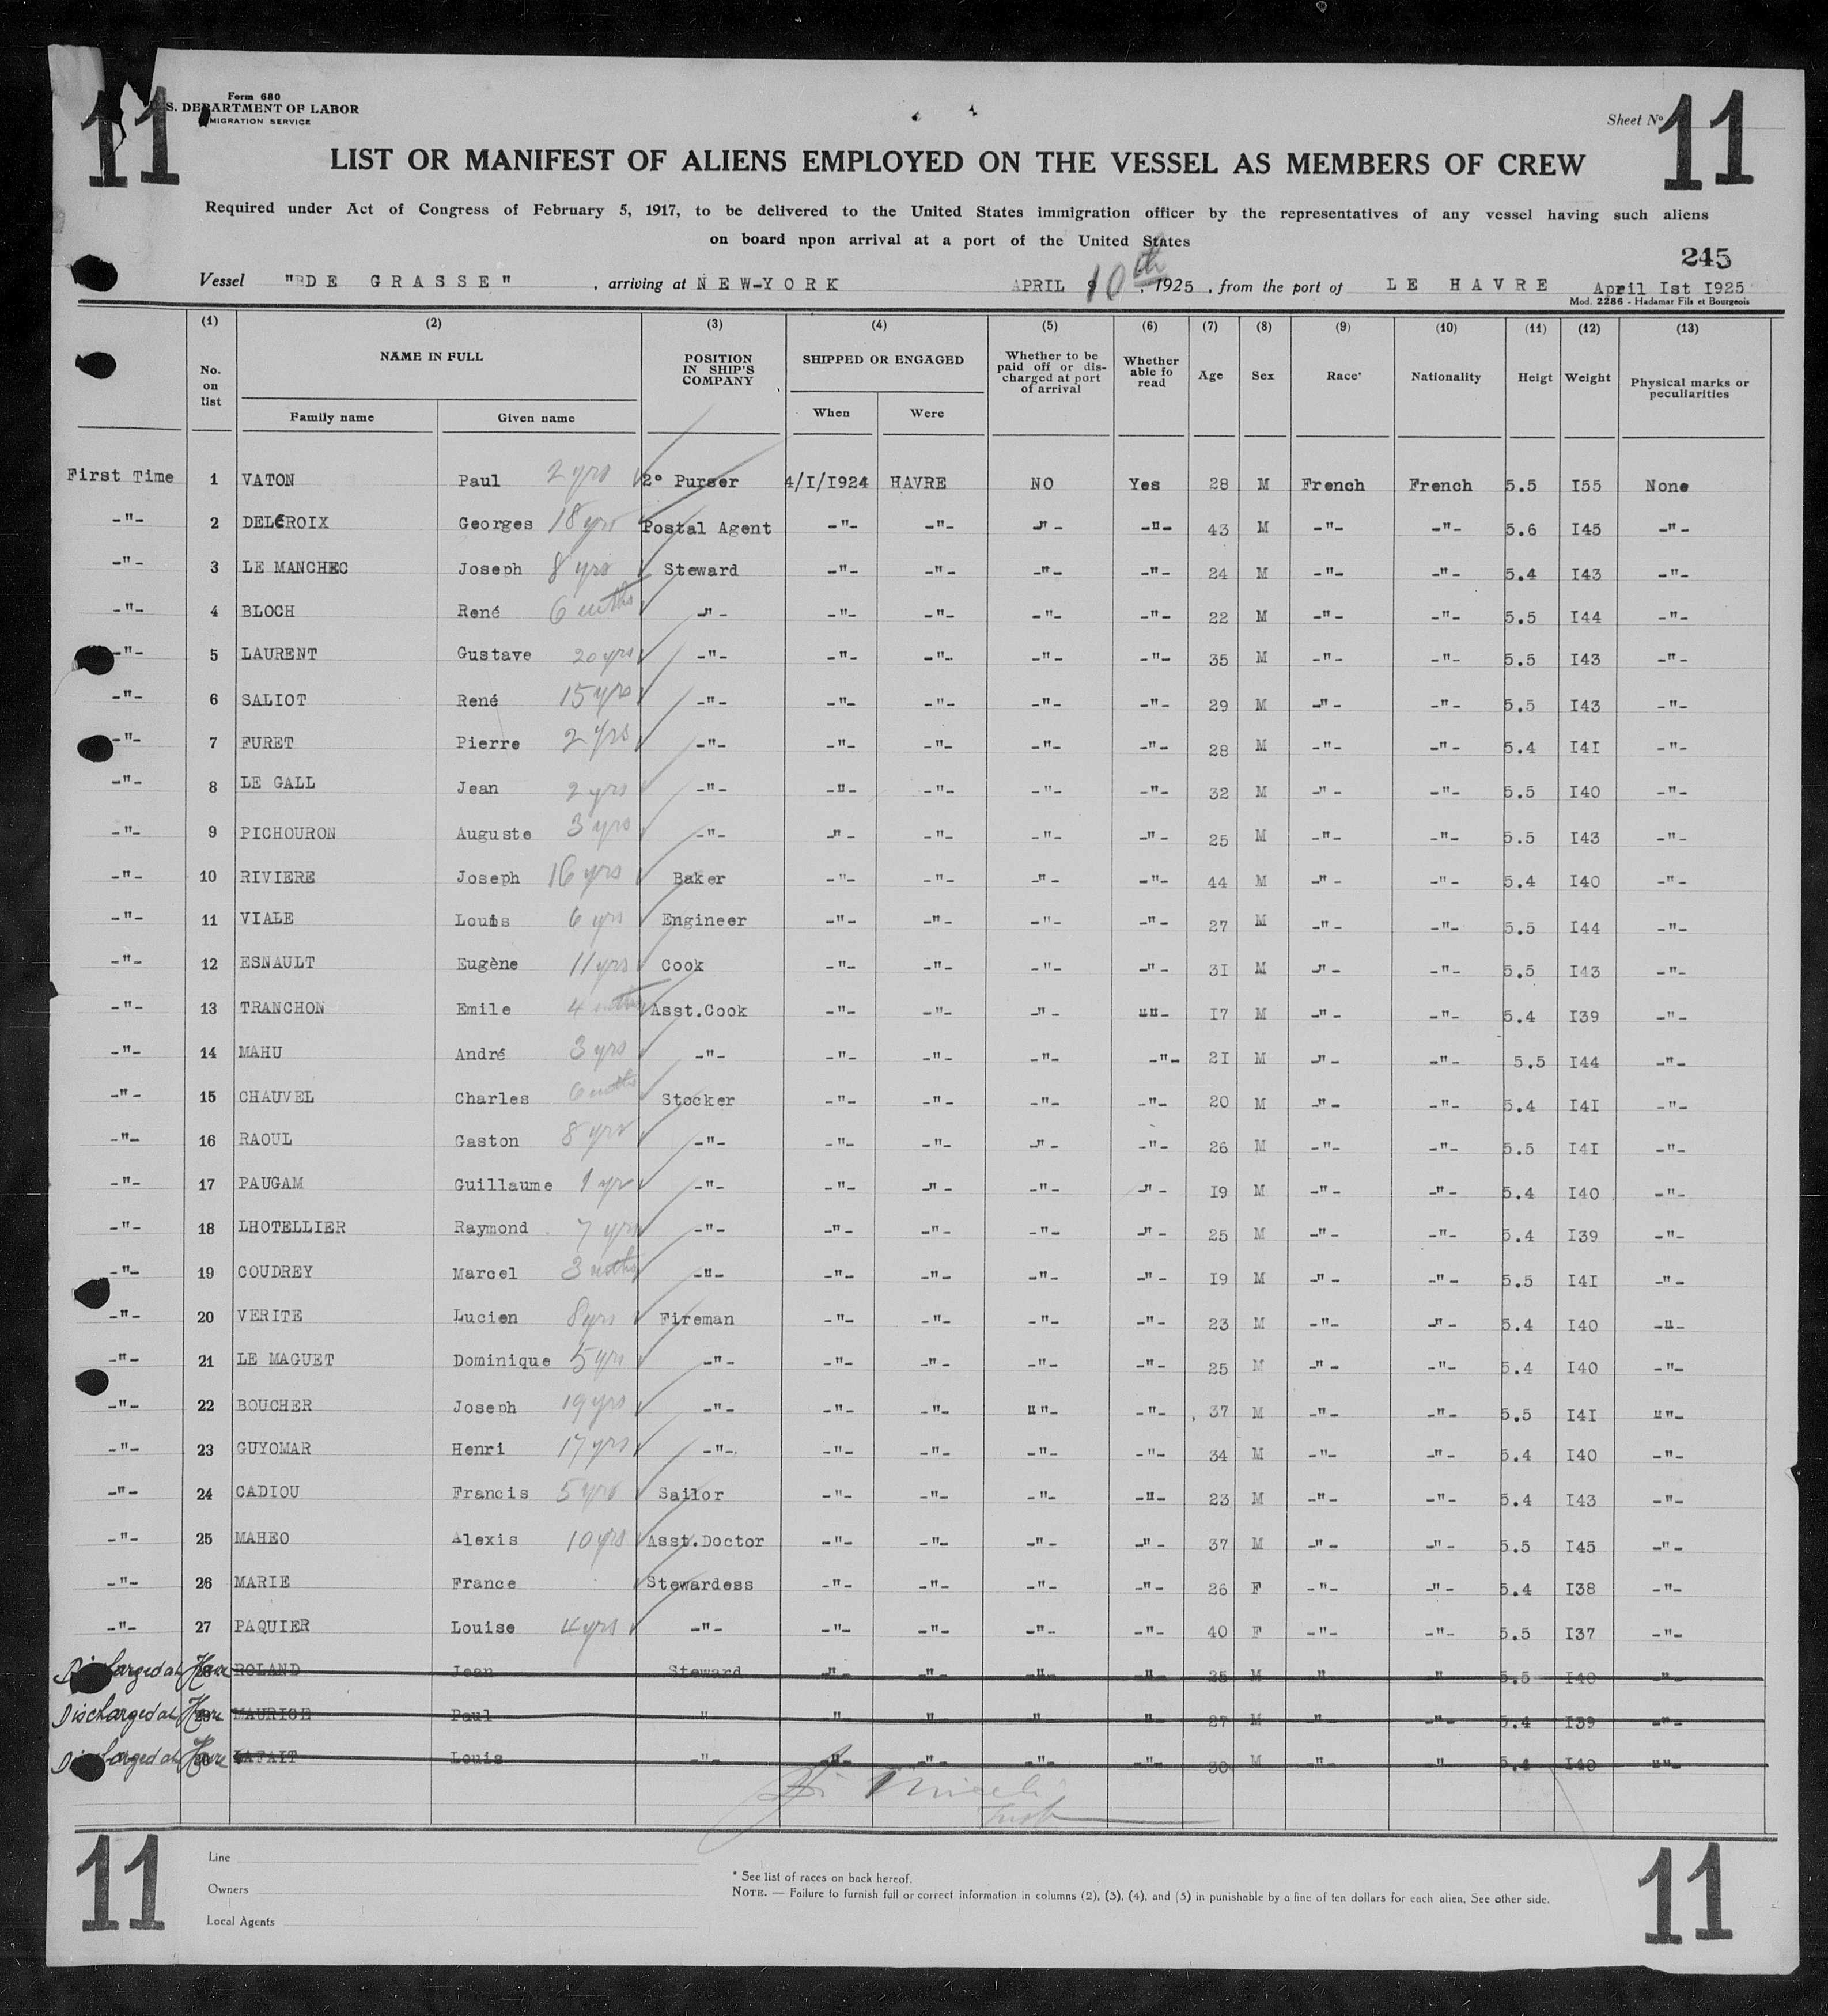 11
Form 680
S. DEPARTMENT OF LABOR
MIGRATION SERVICE
Sheet No 11
LIST OR MANIFEST OF ALIENS EMPLOYED ON THE VESSEL AS MEMBERS OF CREW
Required under Act of Congress of February 5, 1917, to be delivered to the United States immigration officer by the representatives of any vessel having such aliens
on board npon arrival at a port of the United States
245
Vessel "DE GRASSE" , arriving at NEW-YORK APRIL 10th , 1925 , from the port of LE HAVRE April Ist I925
Mod. 2286 - Hadamar Fils et Bourgeois
(1) (2) (3) (4) (5) (6) (7) (8) (9) (10) (11) (12) (13)
No. on list NAME IN FULL POSITION IN SHIP'S COMPANY SHIPPED OR ENGAGED Whether to be paid off or discharged at port of arrival Whether able fo read Age Sex Race* Nationality Heigt Weight Physical marks or peculiarities
Family name Given name When Were
First Time 1 VATON Paul 2 yrs 2° Purser 4/I/I924 HAVRE NO Yes 28 M French French 5.5 I55 None
-"- 2 DELCROIX Georges 18 yrs Postal Agent -"- -"- -"- -"- 43 M -"- -"- 5.6 I45 -"-
-"- 3 LE MANCHEC Joseph 8 yrs Steward -"- -"- -"- -"- 24 M -"- -"- 5.4 I43 -"-
-"- 4 BLOCH René 6 mths -"- -"- -"- -"- -"- 22 M -"- -"- 5.5 I44 -"-
-"- 5 LAURENT Gustave 20 yrs -"- -"- -"- -"- -"- 35 M -"- -"- 5.5 I43 -"-
-"- 6 SALIOT René 15 yrs -"- -"- -"- -"- -"- 29 M -"- -"- 5.5 I43 -"-
-"- 7 FURET Pierre 2 yrs -"- -"- -"- -"- -"- 28 M -"- -"- 5.4 I4I -"-
-"- 8 LE GALL Jean 2 yrs -"- -"- -"- -"- -"- 32 M -"- -"- 5.5 I40 -"-
-"- 9 PICHOURON Auguste 3 yrs -"- -"- -"- -"- -"- 25 M -"- -"- 5.5 I43 -"-
-"- 10 RIVIERE Joseph 16 yrs Baker -"- -"- -"- -"- 44 M -"- -"- 5.4 I40 -"-
-"- 11 VIALE Louis 6 yrs Engineer -"- -"- -"- -"- 27 M -"- -"- 5.5 I44 -"-
-"- 12 ESNAULT Eugène 11 yrs Cook -"- -"- -"- -"- 3I M -"- -"- 5.5 I43 -"-
-"- 13 TRANCHON Emile 4 mths Asst.Cook -"- -"- -"- ""- I7 M -"- -"- 5.4 I39 -"-
-"- 14 MAHU André 3 yrs -"- -"- -"- -"- -"- 2I M -"- -"- 5.5 I44 -"-
-"- 15 CHAUVEL Charles 6 mths Stocker -"- -"- -"- -"- 20 M -"- -"- 5.4 I4I -"-
-"- 16 RAOUL Gaston 8 yrs -"- -"- -"- -"- -"- 26 M -"- -"- 5.5 I4I -"-
-"- 17 PAUGAM Guillaume 1 yr -"- -"- -"- -"- -"- I9 M -"- -"- 5.4 I40 -"-
-"- 18 LHOTELLIER Raymond 7 yrs -"- -"- -"- -"- -"- 25 M -"- -"- 5.4 I39 -"-
-"- 19 COUDREY Marcel 3 mths -"- -"- -"- -"- -"- I9 M -"- -"- 5.5 I4I -"-
-"- 20 VERITE Lucien 8 yrs Fireman -"- -"- -"- -"- 23 M -"- -"- 5.4 I40 -"-
-"- 21 LE MAGUET Dominique 5 yrs -"- -"- -"- -"- -"- 25 M -"- -"- 5.4 I40 -"-
-"- 22 BOUCHER Joseph 19 yrs -"- -"- -"- ""- -"- 37 M -"- -"- 5.5 I4I ""-
-"- 23 GUYOMAR Henri 17 yrs -"- -"- -"- -"- -"- 34 M -"- -"- 5.4 I40 -"-
-"- 24 CADIOU Francis 5 yrs Sailor -"- -"- -"- -"- 23 M -"- -"- 5.4 I43 -"-
-"- 25 MAHEO Alexis 10 yrs Asst.Doctor -"- -"- -"- -"- 37 M -"- -"- 5.5 I45 -"-
-"- 26 MARIE France Stewardess -"- -"- -"- -"- 26 F -"- -"- 5.4 I38 -"-
-"- 27 PAQUIER Louise 4 yrs -"- -"- -"- -"- -"- 40 F -"- -"- 5.5 I37 -"-
Discharged at Havre 28 ROLAND Jean Steward -"- -"- -"- -"- 25 M " " 5.5 I40 -"-
Discharged at Havre 29 MAURICE Paul " " " " " 27 M " -"- 5.4 I39 -"-
Discharged at Havre 30 LAFAIT Louis -"- -"- -"- -"- -"- 30 M -"- " 5.4 I40 ""-
11
Line
Owners
Local Agents
* See list of races on back hereof.
NOTE. — Failure to furnish full or correct information in columns (2), (3), (4), and (5) in punishable by a fine of ten dollars for each alien, See other side.
11